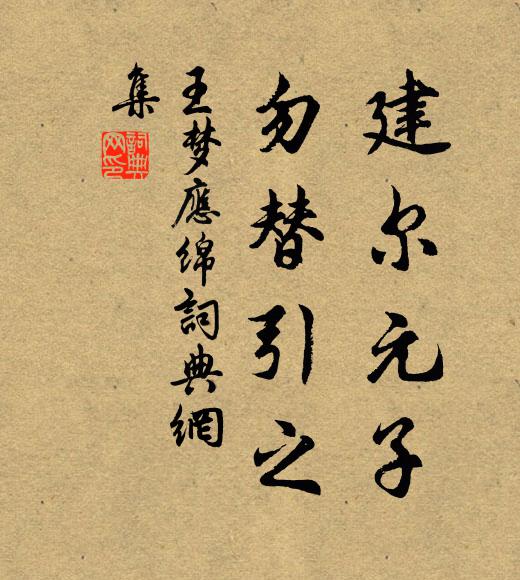 建尔元子
勿替引之
王梦應绵詞典網
集
詞典网印